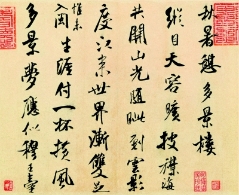 秋暑憩多景樓
縱目天容曠披襟海
共開山光隨眺到雲影
度江来世界漸雙足
惟未入閩生涯付一杯橫風
多景夢應似穆王臺